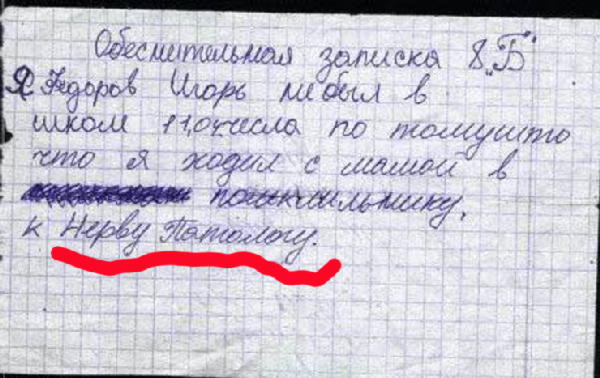 Обеснительная записка 8 „Б"
Я Федоров Игорь небыл в
школ 11,04числа по томушто
что я ходил с мамой в
к Нерву Патологу.